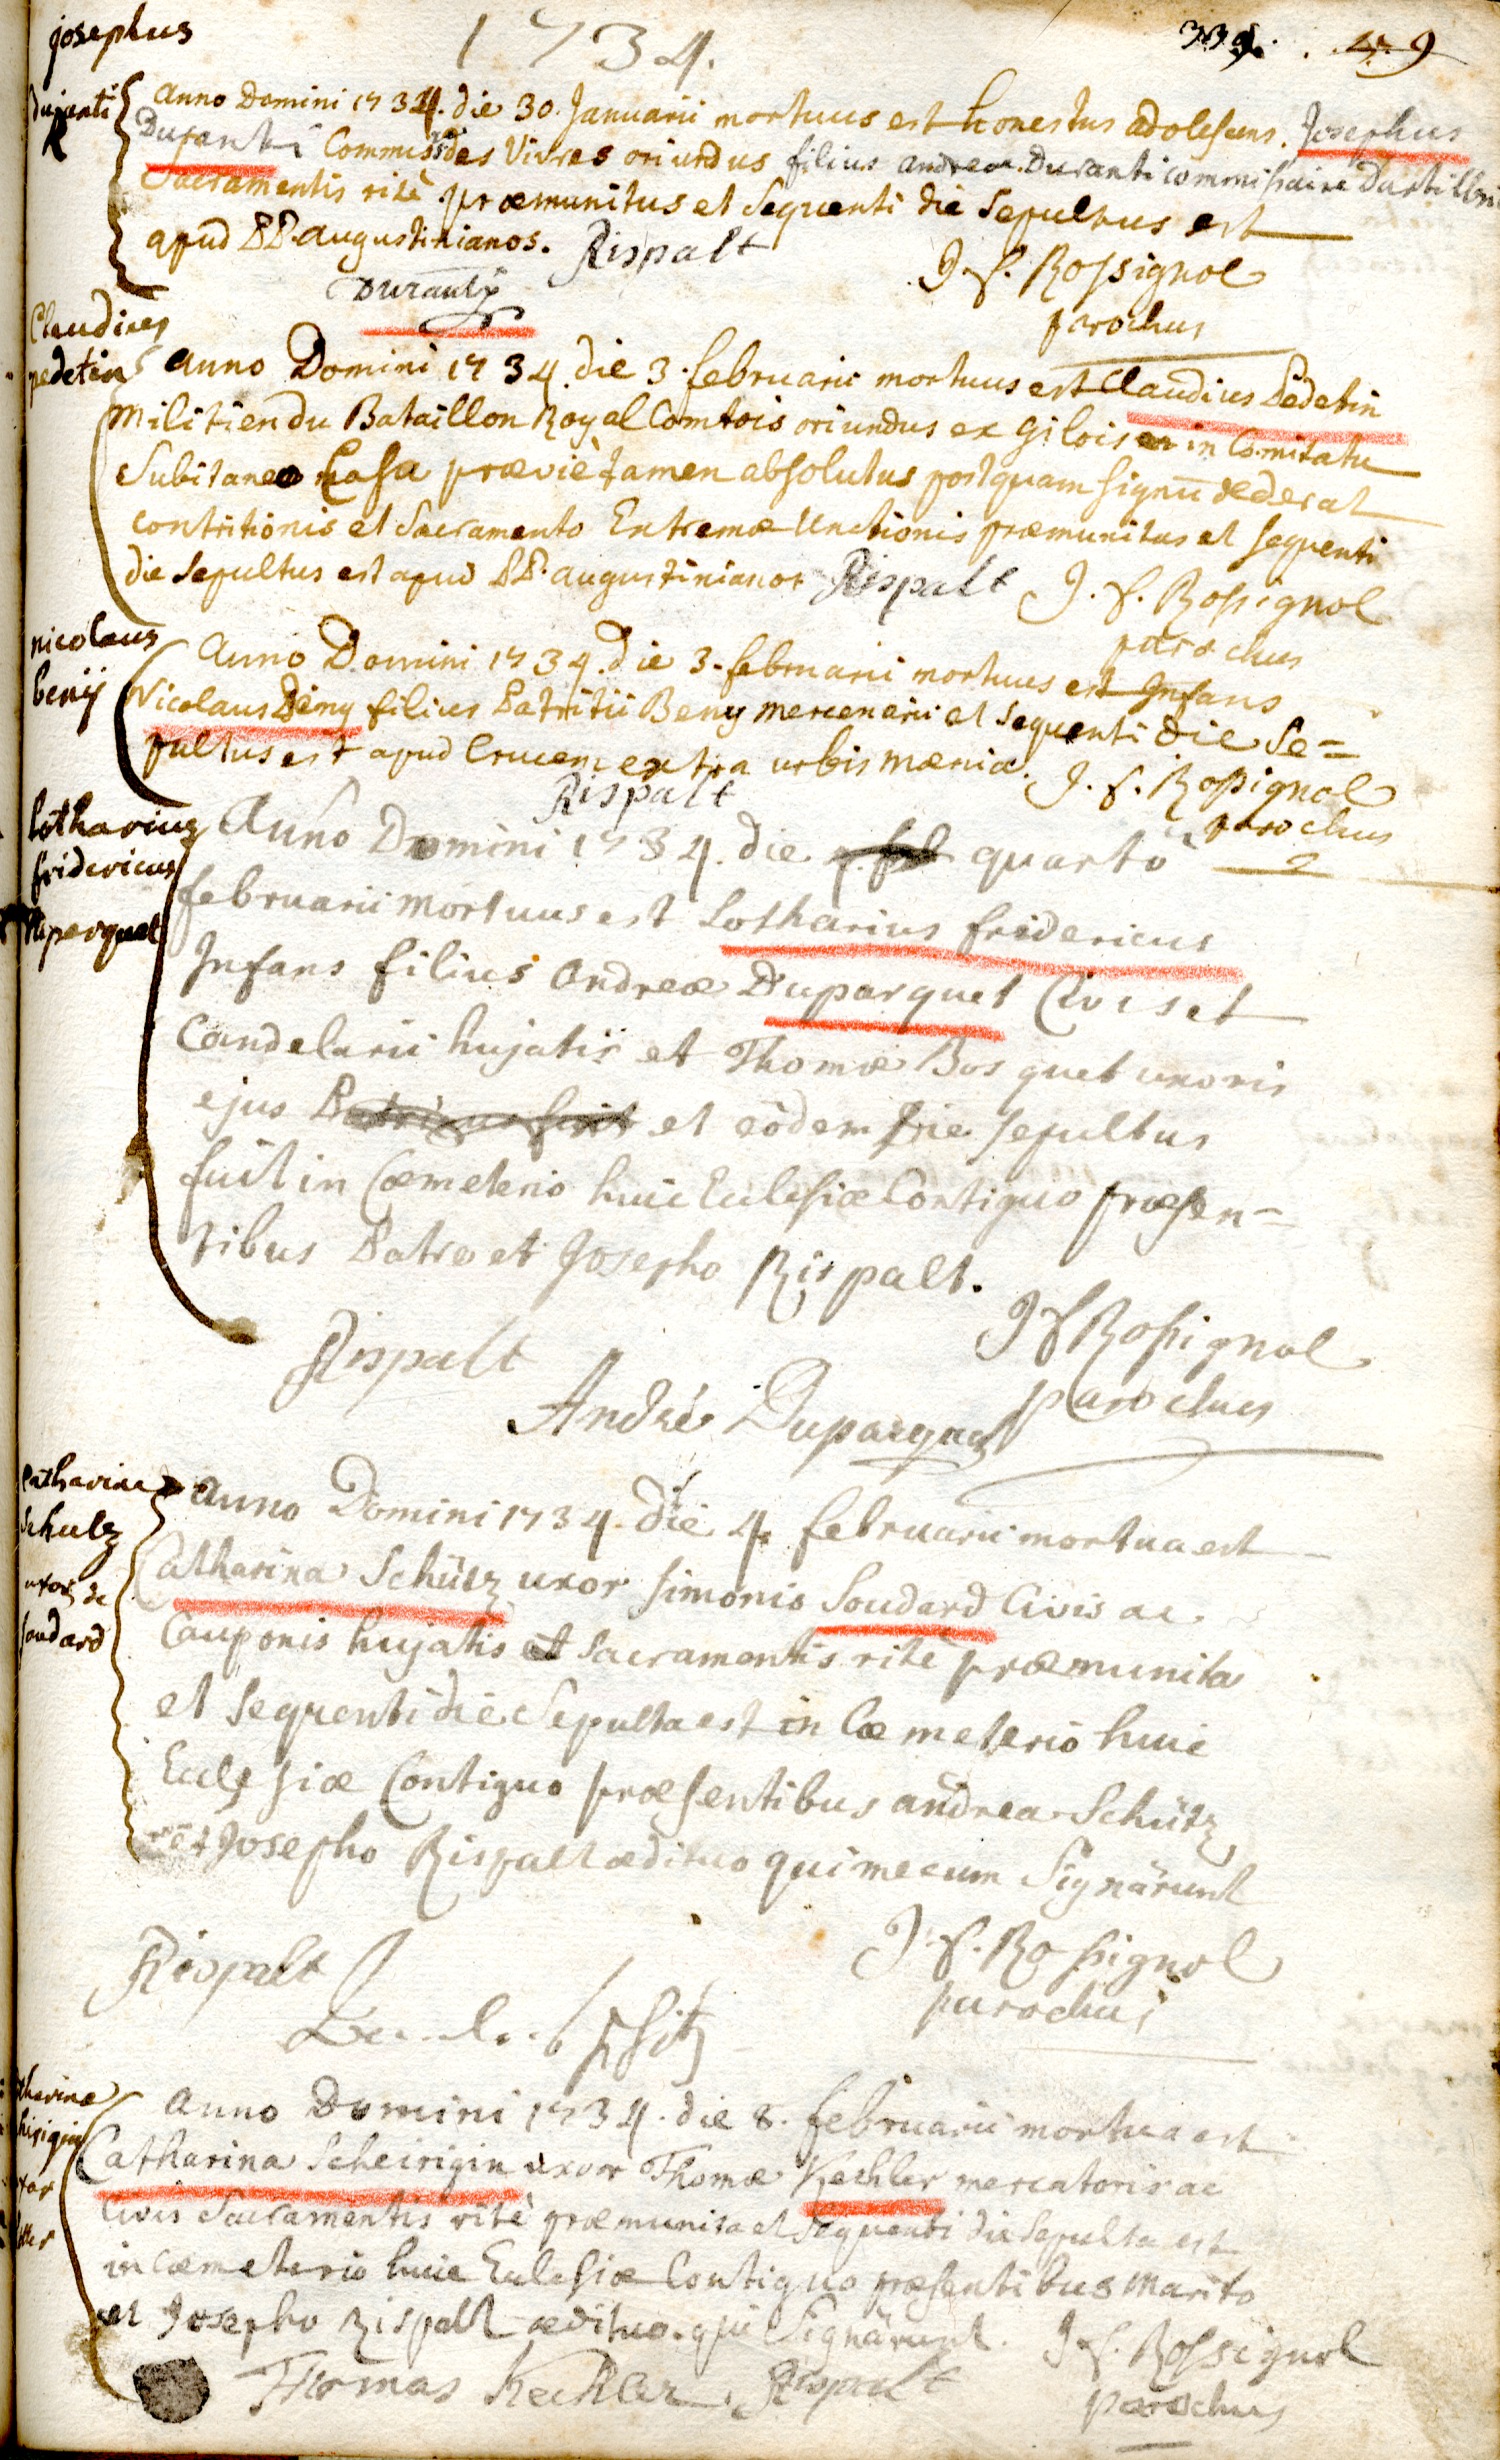 1734.
339. 49
josephus
duranti
Anno Domini 1734. die 30. Januarii mortuus est honestus adolescens. Josephus
Duranti Commis des Vivres oriundus filius andreæ Duranti commissaire Dartillerie
Sacramentis ritè præmunitus et Sequenti die Sepultus est
apud PP. augustinianos. Rispalt
J. f. Rossignol
parochus
Duranty
Claudius
pedetin
Anno Domini 1734. die 3. februarii mortuus est Claudius Pedetin
Militien du Bataillon Royal Comtois oriundus ex Gilois in Comitatu
Subitaneo Casu præviè tamen absolutus postquam signū dederat
contritionis et Sacramento Extremæ Unctionis præmunitus et sequenti
die Sepultus est apud PP. augustinianos Rispalt J. f. Rossignol
parochus
nicolaus
beny
Anno Domini 1734. die 3. februarii mortuus est Infans
Nicolaus Beny filius Patritii Beny mercenarii et Sequenti die Se=
pultus est apud Crucem extra urbis mœnia. J. f. Rossignol
Rispalt parochus
lotharius
fridericus
duparquet
Anno Domini 1734. die quarto
februarii mortuus est Lotharius fridericus
Infans filius Andreæ Duparquet Civis et
Candelarii hujatis et Thomæ Bosquet uxoris
ejus et eodem die sepultus
fuit in Cœmeterio huic Ecclesiæ Contiguo præsen=
tibus Patre et Josepho Rispalt.
J f Rossignol
Rispalt
parochus
André Duparquet
Catharina
Schulz
uxor de
soudard
Anno Domini 1734. die 4 februarii mortua est
Catharina Schütz uxor simonis Soudard Civis ac
Cauponis hujatis et Sacramentis ritè præmunita
et sequenti die Sepulta est in Cœmeterio huic
Ecclesiæ Contiguo præsentibus andrea Schütz
et Josepho Rispalt ædituo qui mecum Signârunt
Rispalt
J. f. Rossignol
parochus
Catharina Scheirigin uxor
Anno Domini 1734. die 8. februarii mortua est
Catharina Scheirigin uxor Thomæ Kechler mercatoris ac
Civis Sacramentis ritè præmunita et Sequenti die Sepulta est
in cœmeterio huic Ecclesiæ Contiguo præsentibus Marito
et Josepho Rispalt ædituo qui Signârunt. J. f. Rossignol
Thomas Kechler. Rispalt parochus